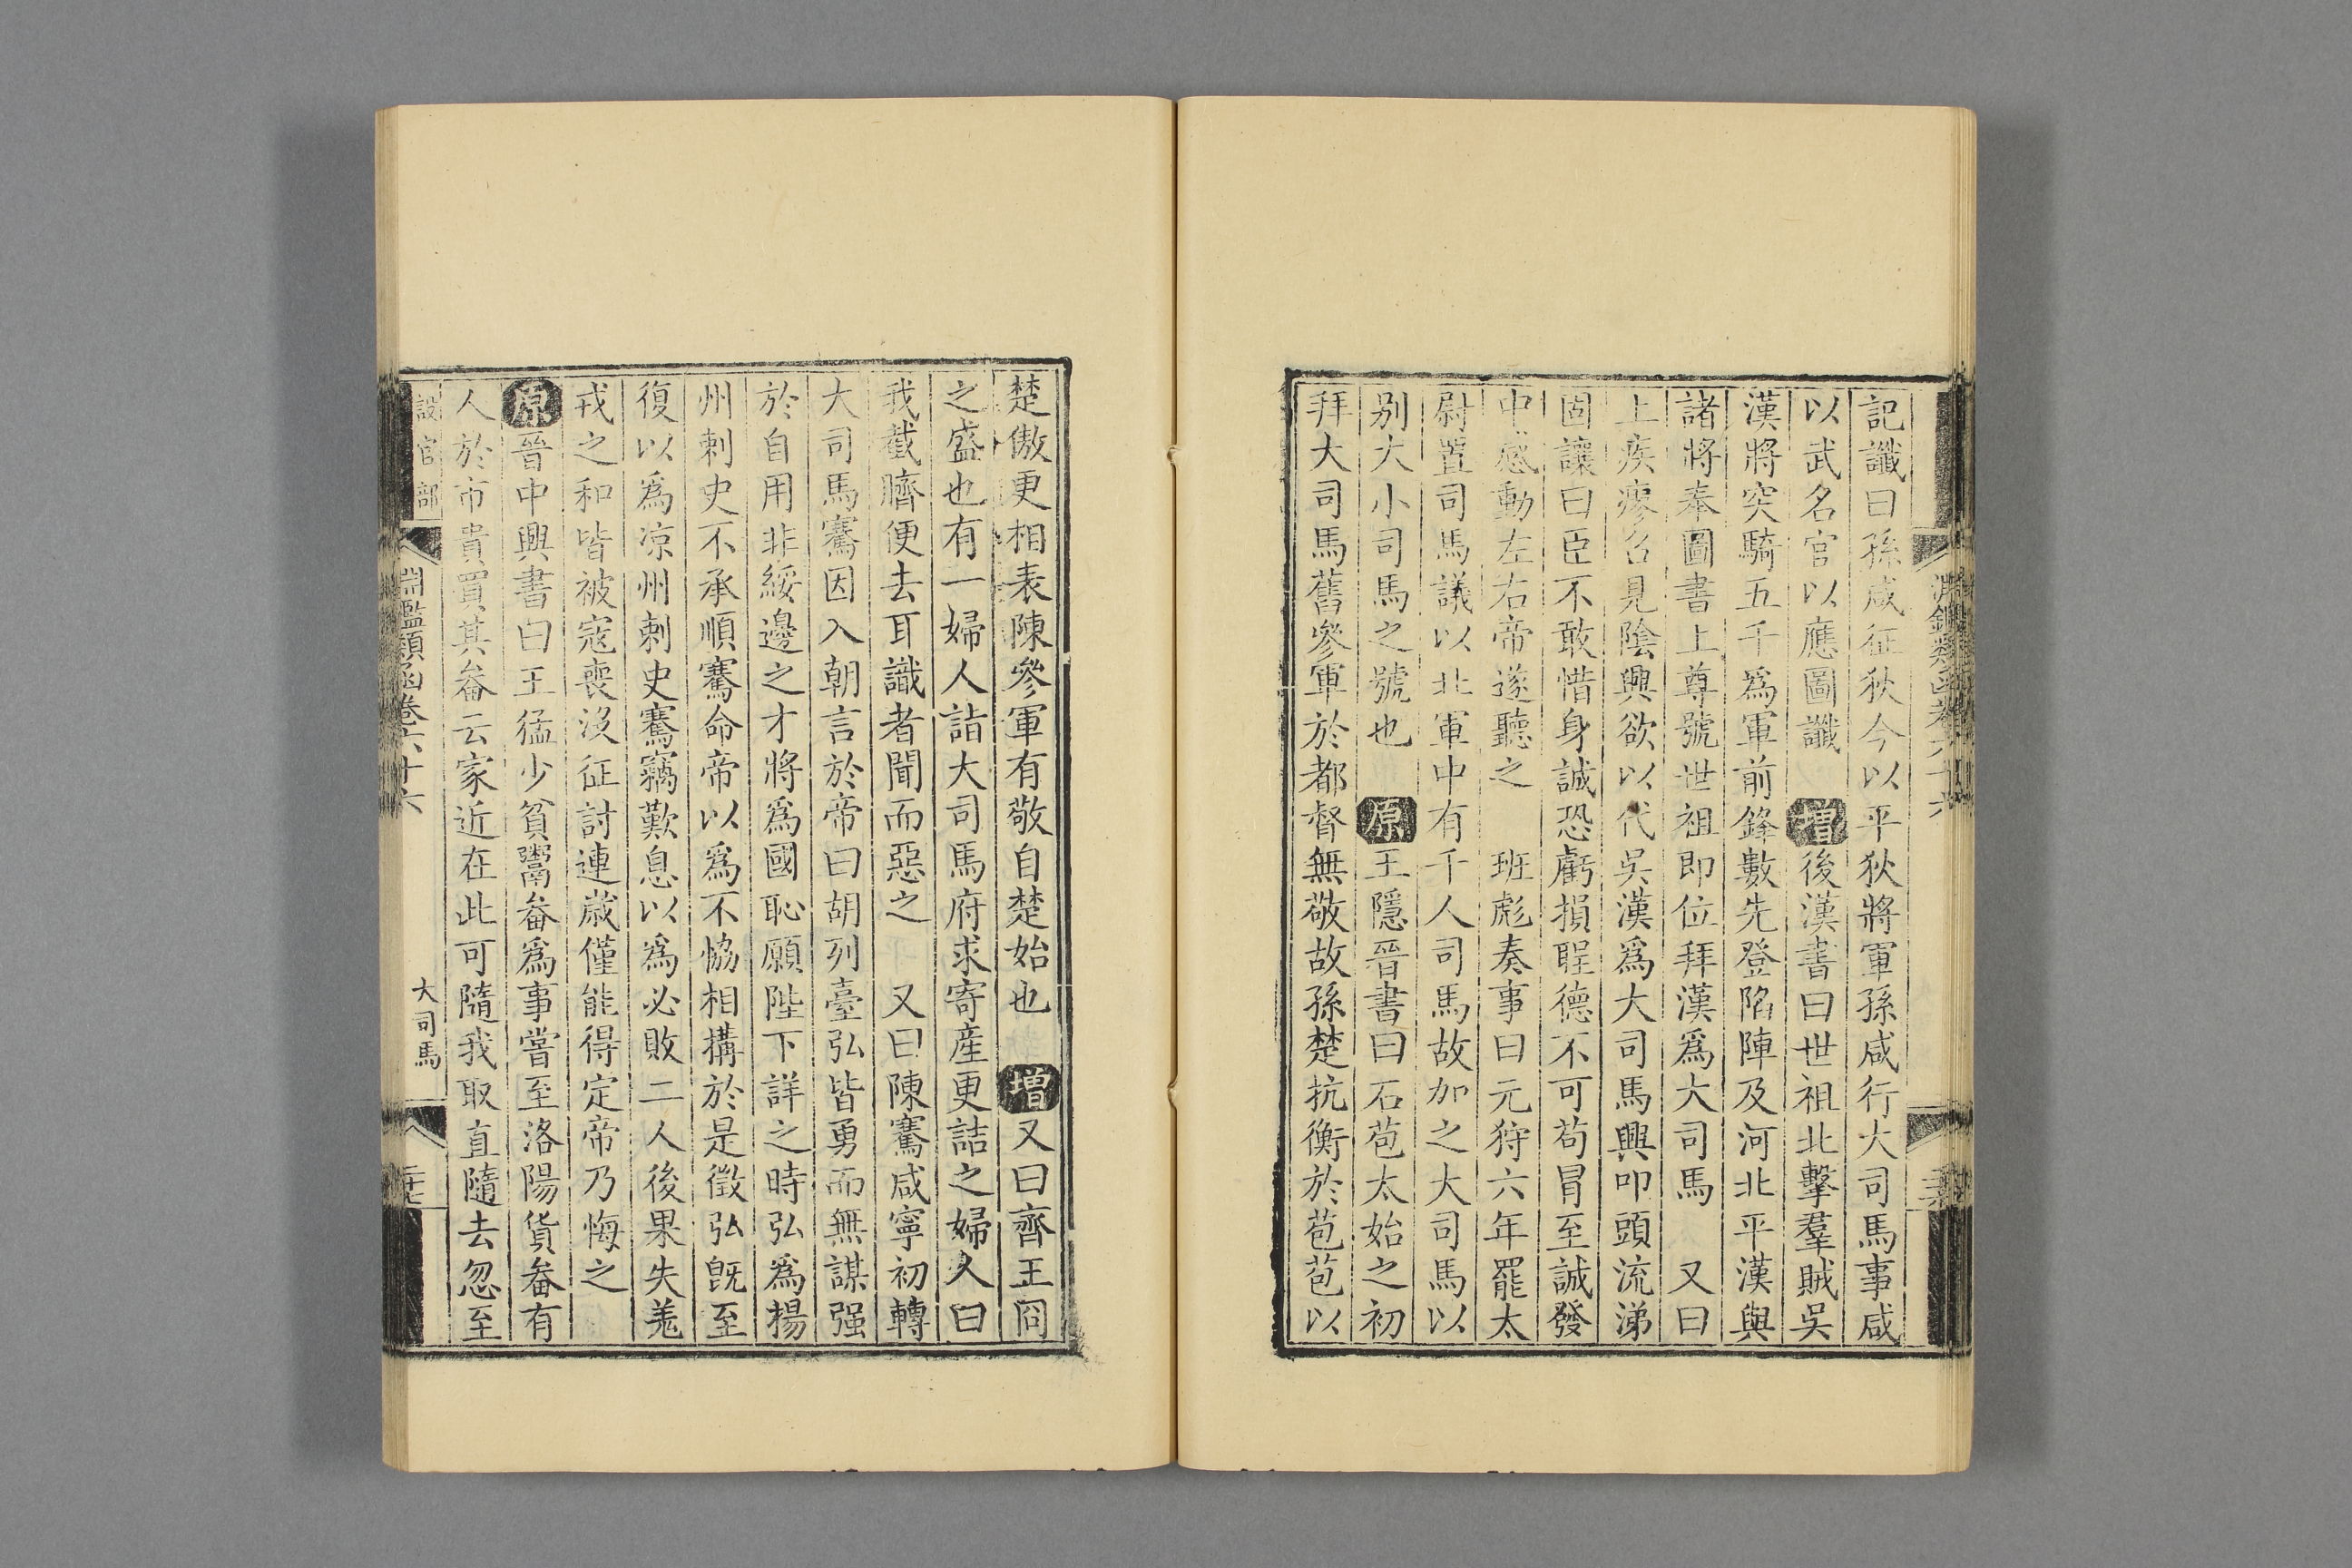 記讖曰孫咸征狄今以平狄將軍孫咸行大司馬事咸
以武名官以應圖讖　增後漢書曰世祖北擊羣賊吳
漢將突騎五千爲軍前鋒數先登陷陣及河北平漢與
諸將奉圖書上尊號世祖即位拜漢爲大司馬　又曰
上疾瘳召見陰興欲以代吳漢爲大司馬興叩頭流涕
固讓曰臣不敢惜身誠恐虧損聖德不可苟冒至誠發
中感動左右帝遂聽之　班彪奏事曰元狩六年罷太
尉置司馬議以北軍中有千人司馬故加之大司馬以
别大小司馬之號也　原王隱晉書曰石苞太始之初
拜大司馬舊參軍於都督無敬故孫楚抗衡於苞苞以
楚傲更相表陳參軍有敬自楚始也　增又曰齊王冏
之盛也有一婦人詣大司馬府求寄産更詰之婦人曰
我截臍便去耳識者聞而惡之　又曰陳騫咸寧初轉
大司馬騫因入朝言於帝曰胡列臺弘皆勇而無謀强
於自用非綏邊之才將爲國恥願陛下詳之時弘爲揚
州刺史不承順騫命帝以爲不恊相搆於是徵弘旣至
復以爲凉州刺史騫竊歎息以爲必敗二人後果失羗
戎之和皆被寇喪没征討連歲僅能得定帝乃悔之
原晉中興書曰王猛少貧鬻畚爲事嘗至洛陽貨畚有
人於市貴買其畚云家近在此可隨我取直隨去忽至
設官部　淵鑑類函卷六十六　大司馬